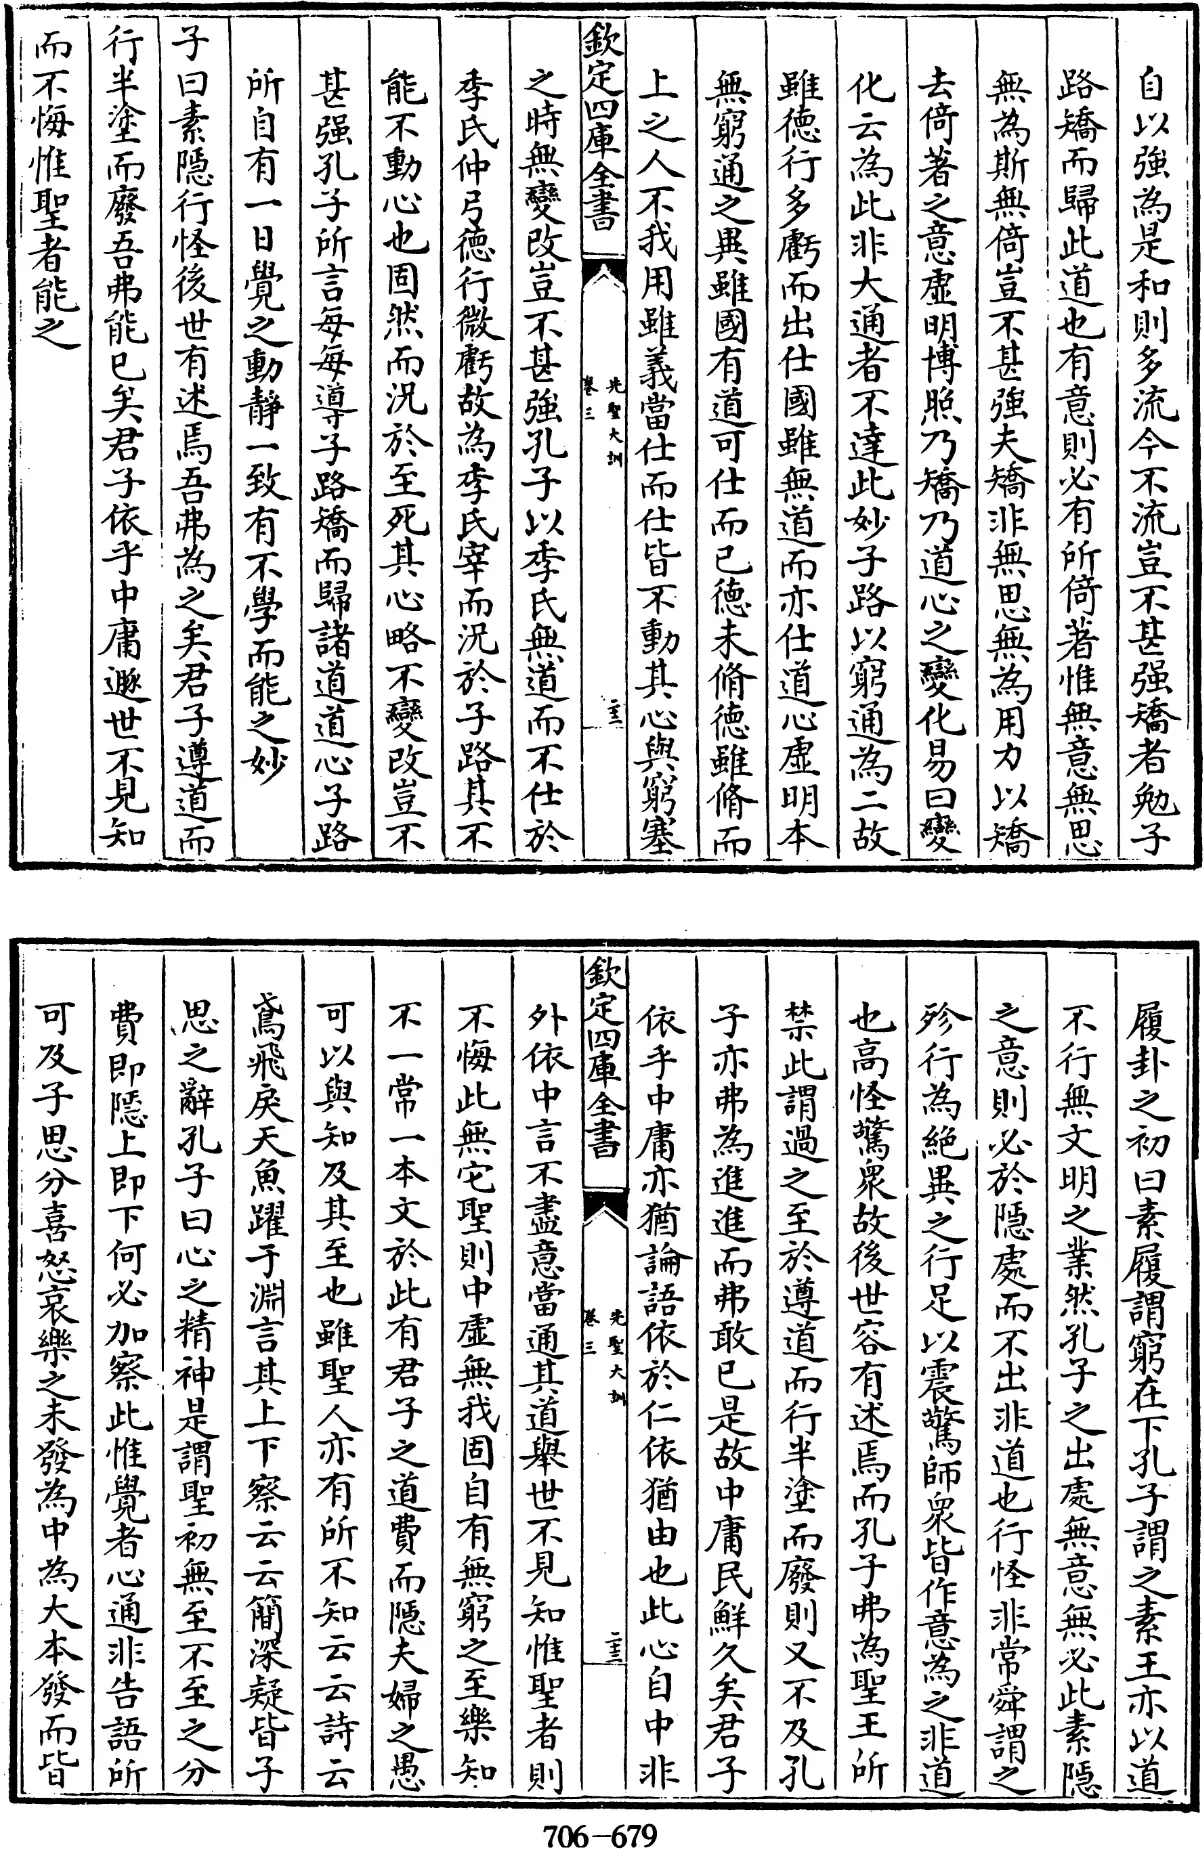 自以強為是和則多流今不流豈不甚强矯者勉子
路矯而歸此道也有意則必有所倚著惟無意無思
無為斯無倚豈不甚强夫矯非無思無為用力以矯
去倚著之意虛明博照乃矯乃道心之變化易曰變
化云為此非大通者不達此妙子路以窮通為二故
雖德行多虧而出仕國雖無道而亦仕道心虛明本
無窮通之異雖國有道可仕而已德未脩德雖脩而
上之人不我用雖義當仕而仕皆不動其心與窮塞
欽定四庫全書
先聖大訓
卷三
二十三
之時無變改豈不甚強孔子以季氏無道而不仕於
季氏仲弓德行微虧故為季氏宰而況於子路其不
能不動心也固然而況於至死其心略不變改豈不
甚强孔子所言每每導子路矯而歸諸道道心子路
所自有一日覺之動靜一致有不學而能之妙
子曰素隱行怪後世有述焉吾弗為之矣君子遵道而
行半塗而廢吾弗能已矣君子依乎中庸遯世不見知
而不悔惟聖者能之
履卦之初曰素履謂窮在下孔子謂之素王亦以道
不行無文明之業然孔子之出處無意無必此素隱
之意則必於隱處而不出非道也行怪非常舜謂之
殄行為絕異之行足以震驚師衆皆作意為之非道
也高怪驚衆故後世容有述焉而孔子弗為聖王所
禁此謂過之至於遵道而行半塗而廢則又不及孔
子亦弗為進進而弗敢已是故中庸民鮮久矣君子
依乎中庸亦猶論語依於仁依猶由也此心自中非
欽定四庫全書
先聖大訓
卷三
二十三
外依中言不盡意當通其道舉世不見知惟聖者則
不悔此無它聖則中虛無我固自有無窮之至樂知
不一常一本文於此有君子之道費而隱夫婦之愚
可以與知及其至也雖聖人亦有所不知云云詩云
鳶飛戾天魚躍于淵言其上下察云云簡深疑皆子
思之辭孔子曰心之精神是謂聖初無至不至之分
費即隱上即下何必加察此惟覺者心通非告語所
可及子思分喜怒哀樂之未發為中為大本發而皆
706-679